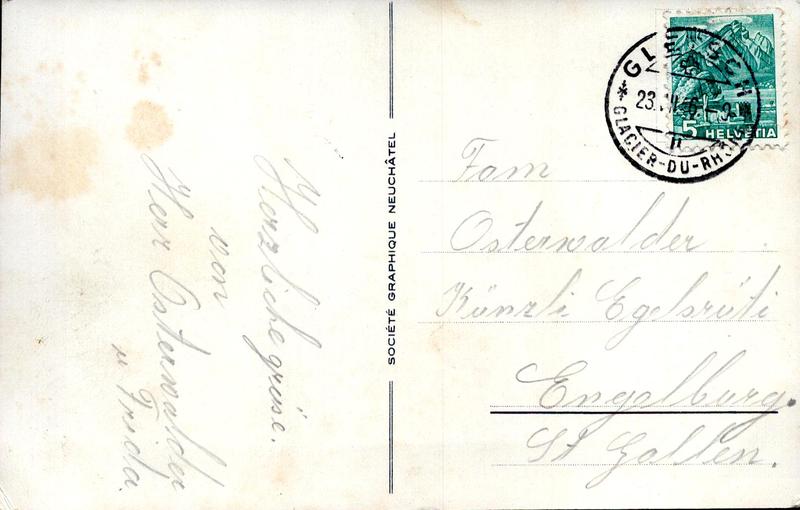 Herzliche grüse.
von
Herr Osterwalder
u Frida.
SOCIÉTÉ GRAPHIQUE NEUCHÂTEL
GLETSCH
23.
GLACIER-DU-RHÔNE
5 HELVETIA
Fam
Osterwalder
Künzli Egelsrüti
Engelburg.
St Gallen.